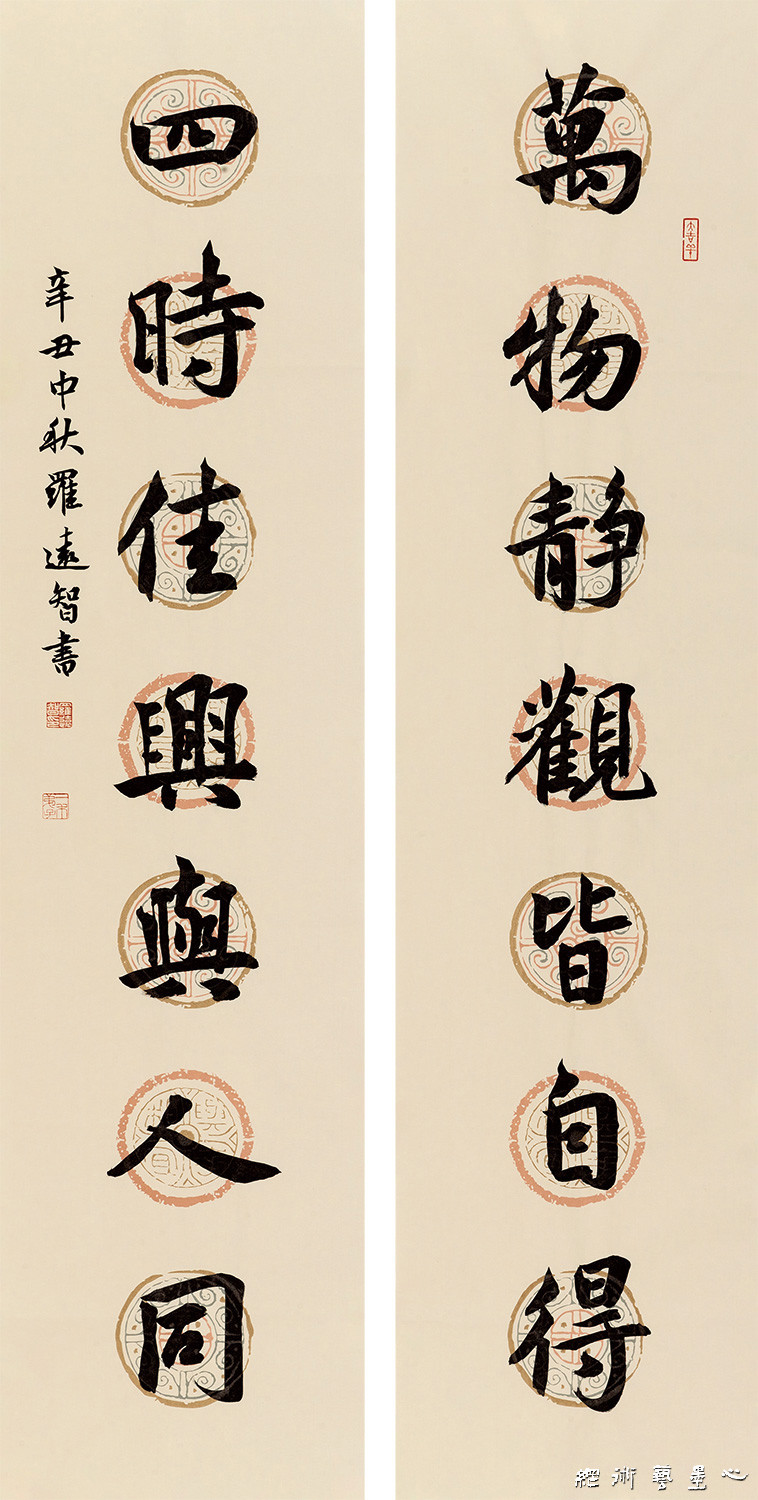 萬物靜觀皆自得
四時佳興與人同
辛丑中秋羅遠智書
心墨藝術經